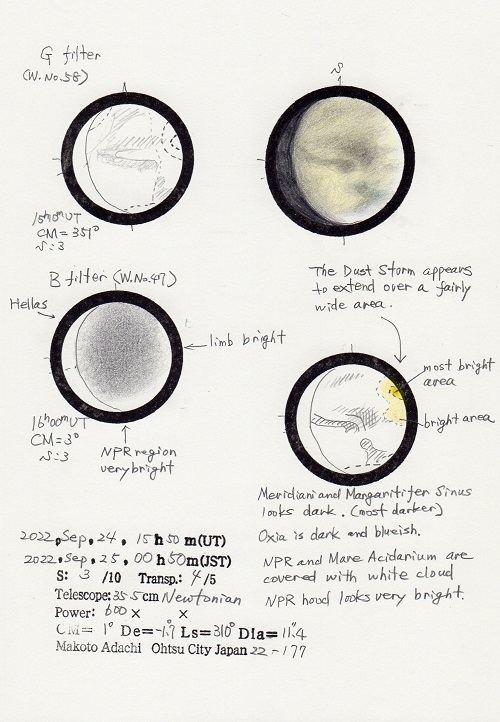 G filter
(W.No.58)
S
15h50m UT
CM=357°
S:3
B filter (W.No.47)
Hellas
limb bright
16h00m UT
CM=3°
S:3
NPR region
very bright
The Dust Storm appears
to extend over a fairly
wide area.
most bright
area
bright area
Meridiani and Margaritifer Sinus
looks dark. (most darker)
Oxia is dark and blueish.
NPR and Mare Acidarium are
covered with white cloud
NPR hood looks very bright.
2022, Sep, 24, 15h50m(UT)
2022, Sep, 25, 00h50m(JST)
S: 3 /10 Transp.: 4/5
Telescope: 355cm Newtonian
Power: 600× ×
CM= 1° De=-1.7° Ls=310° Dia=11."4
Makoto Adachi Ohtsu City Japan 22-177